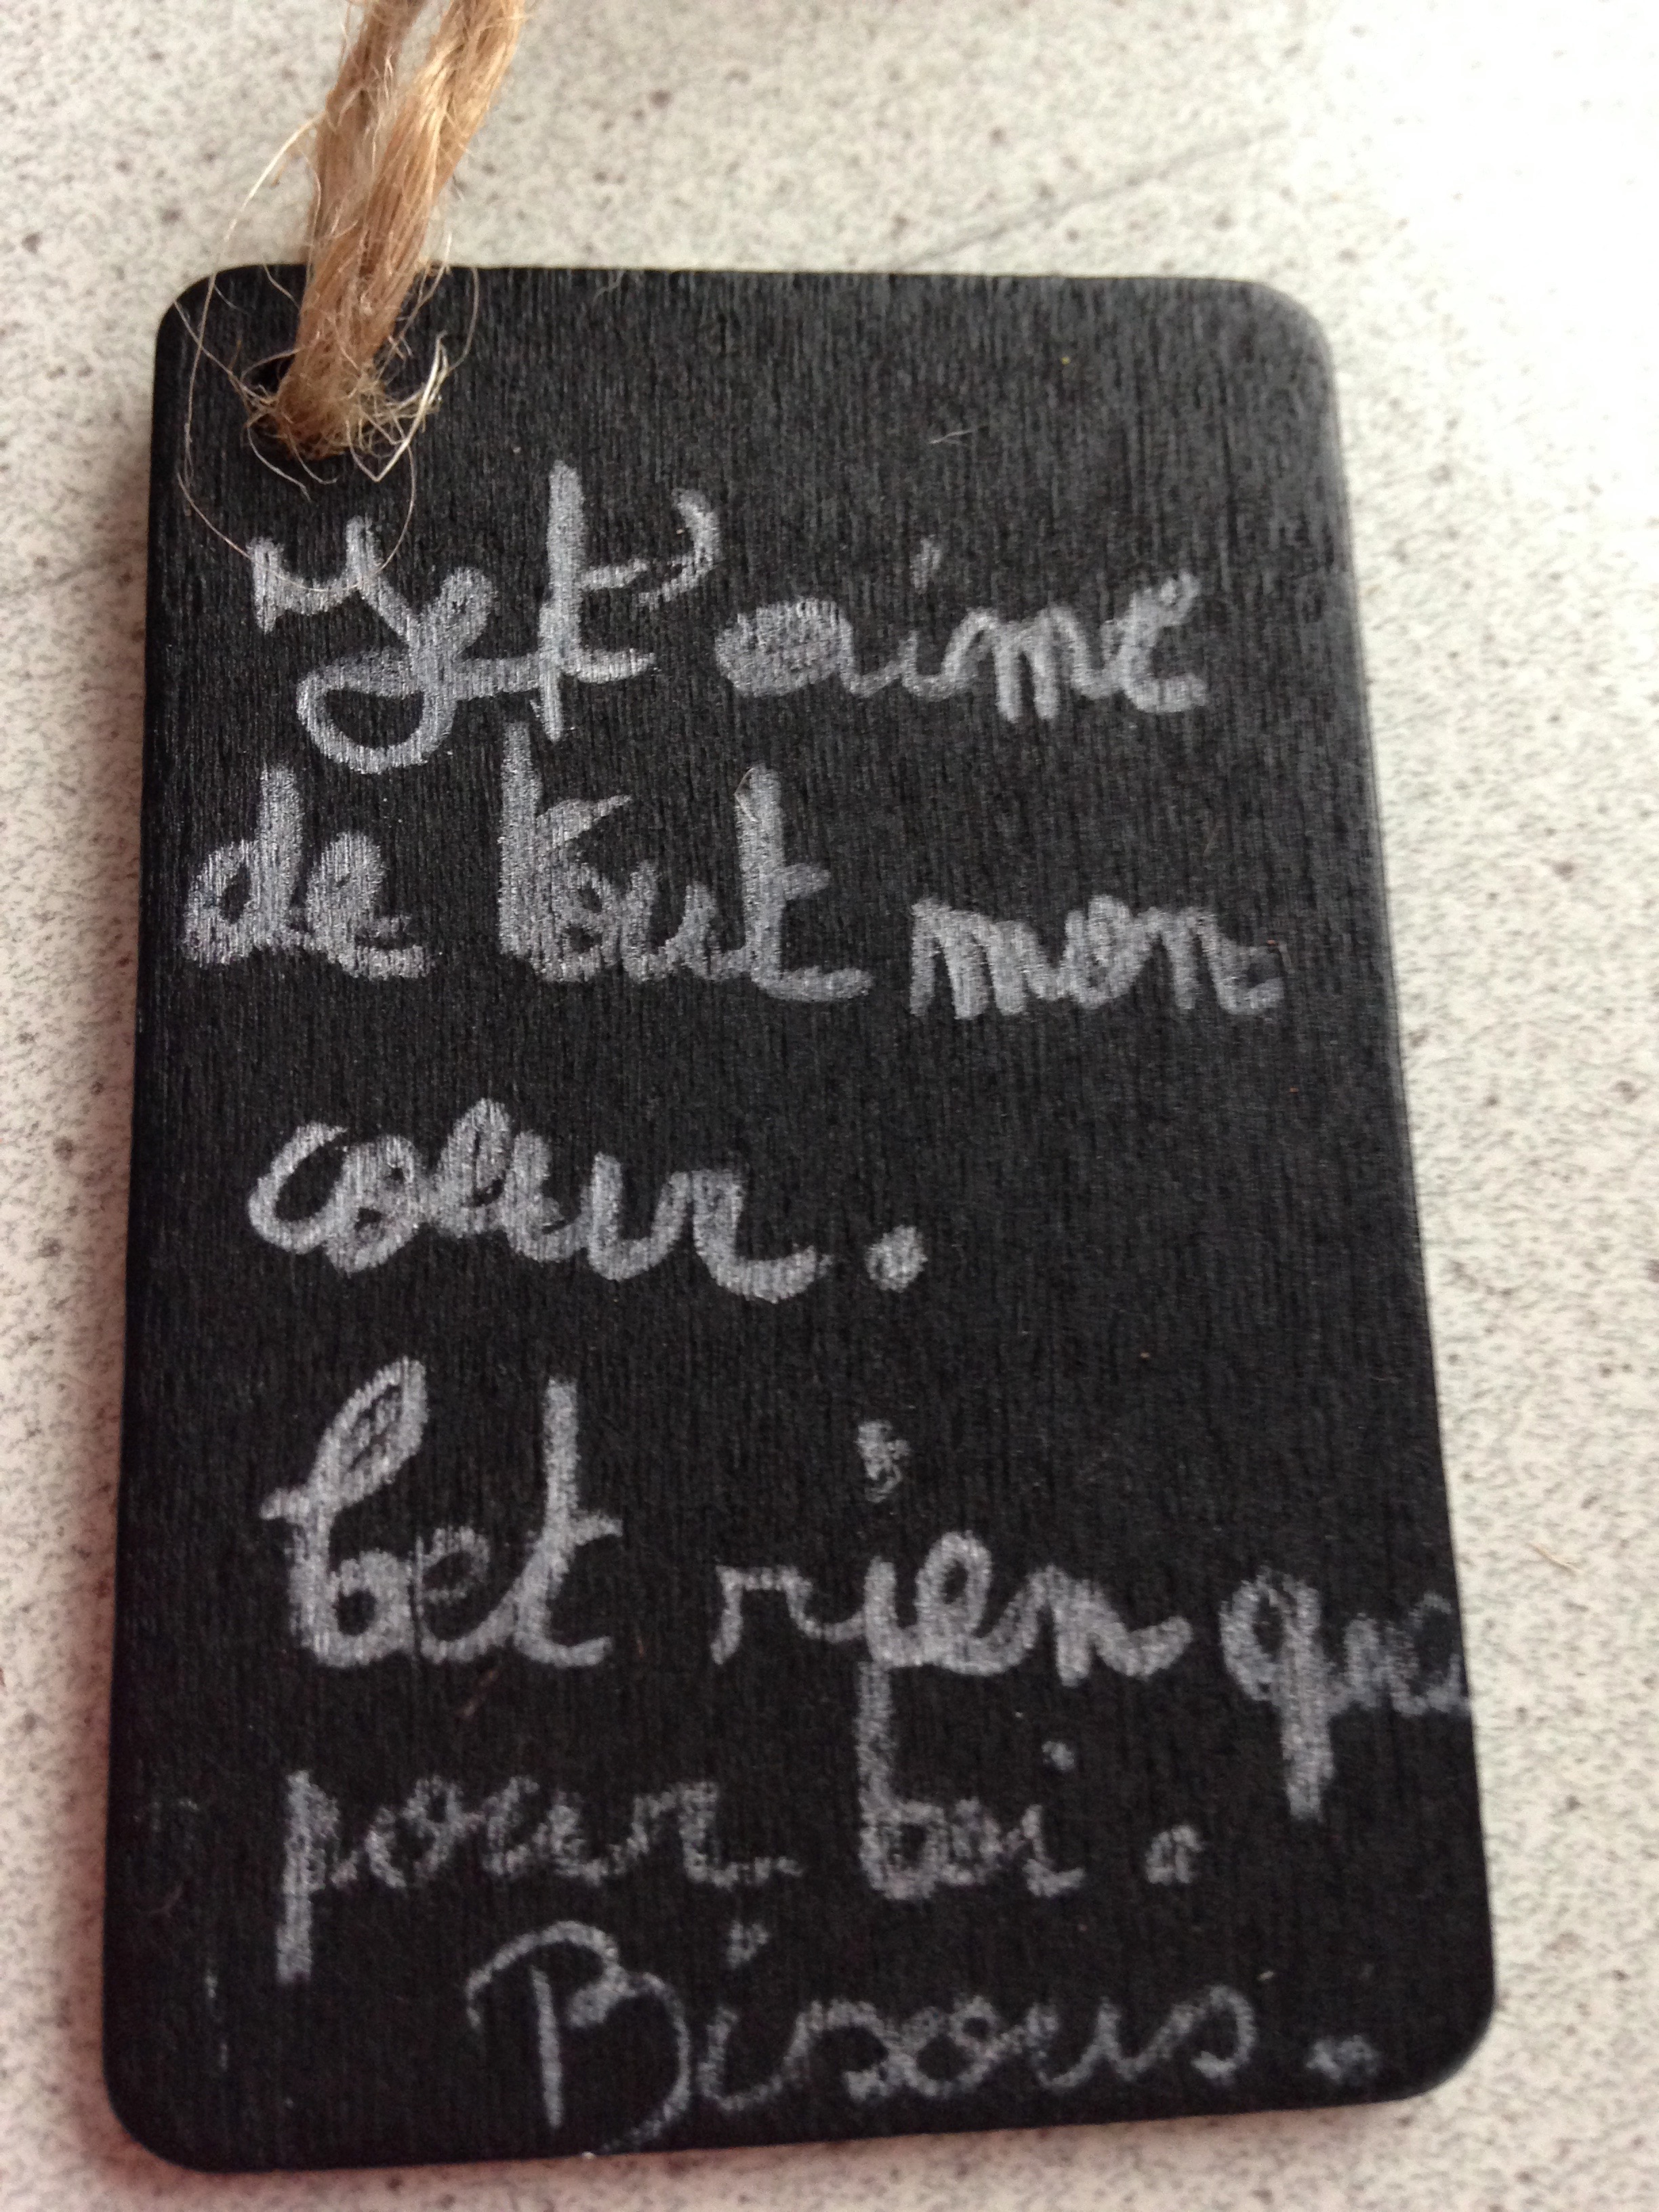 Je t'aime
de tout mon
cœur.
Et rien que
pour toi.
Bisous.